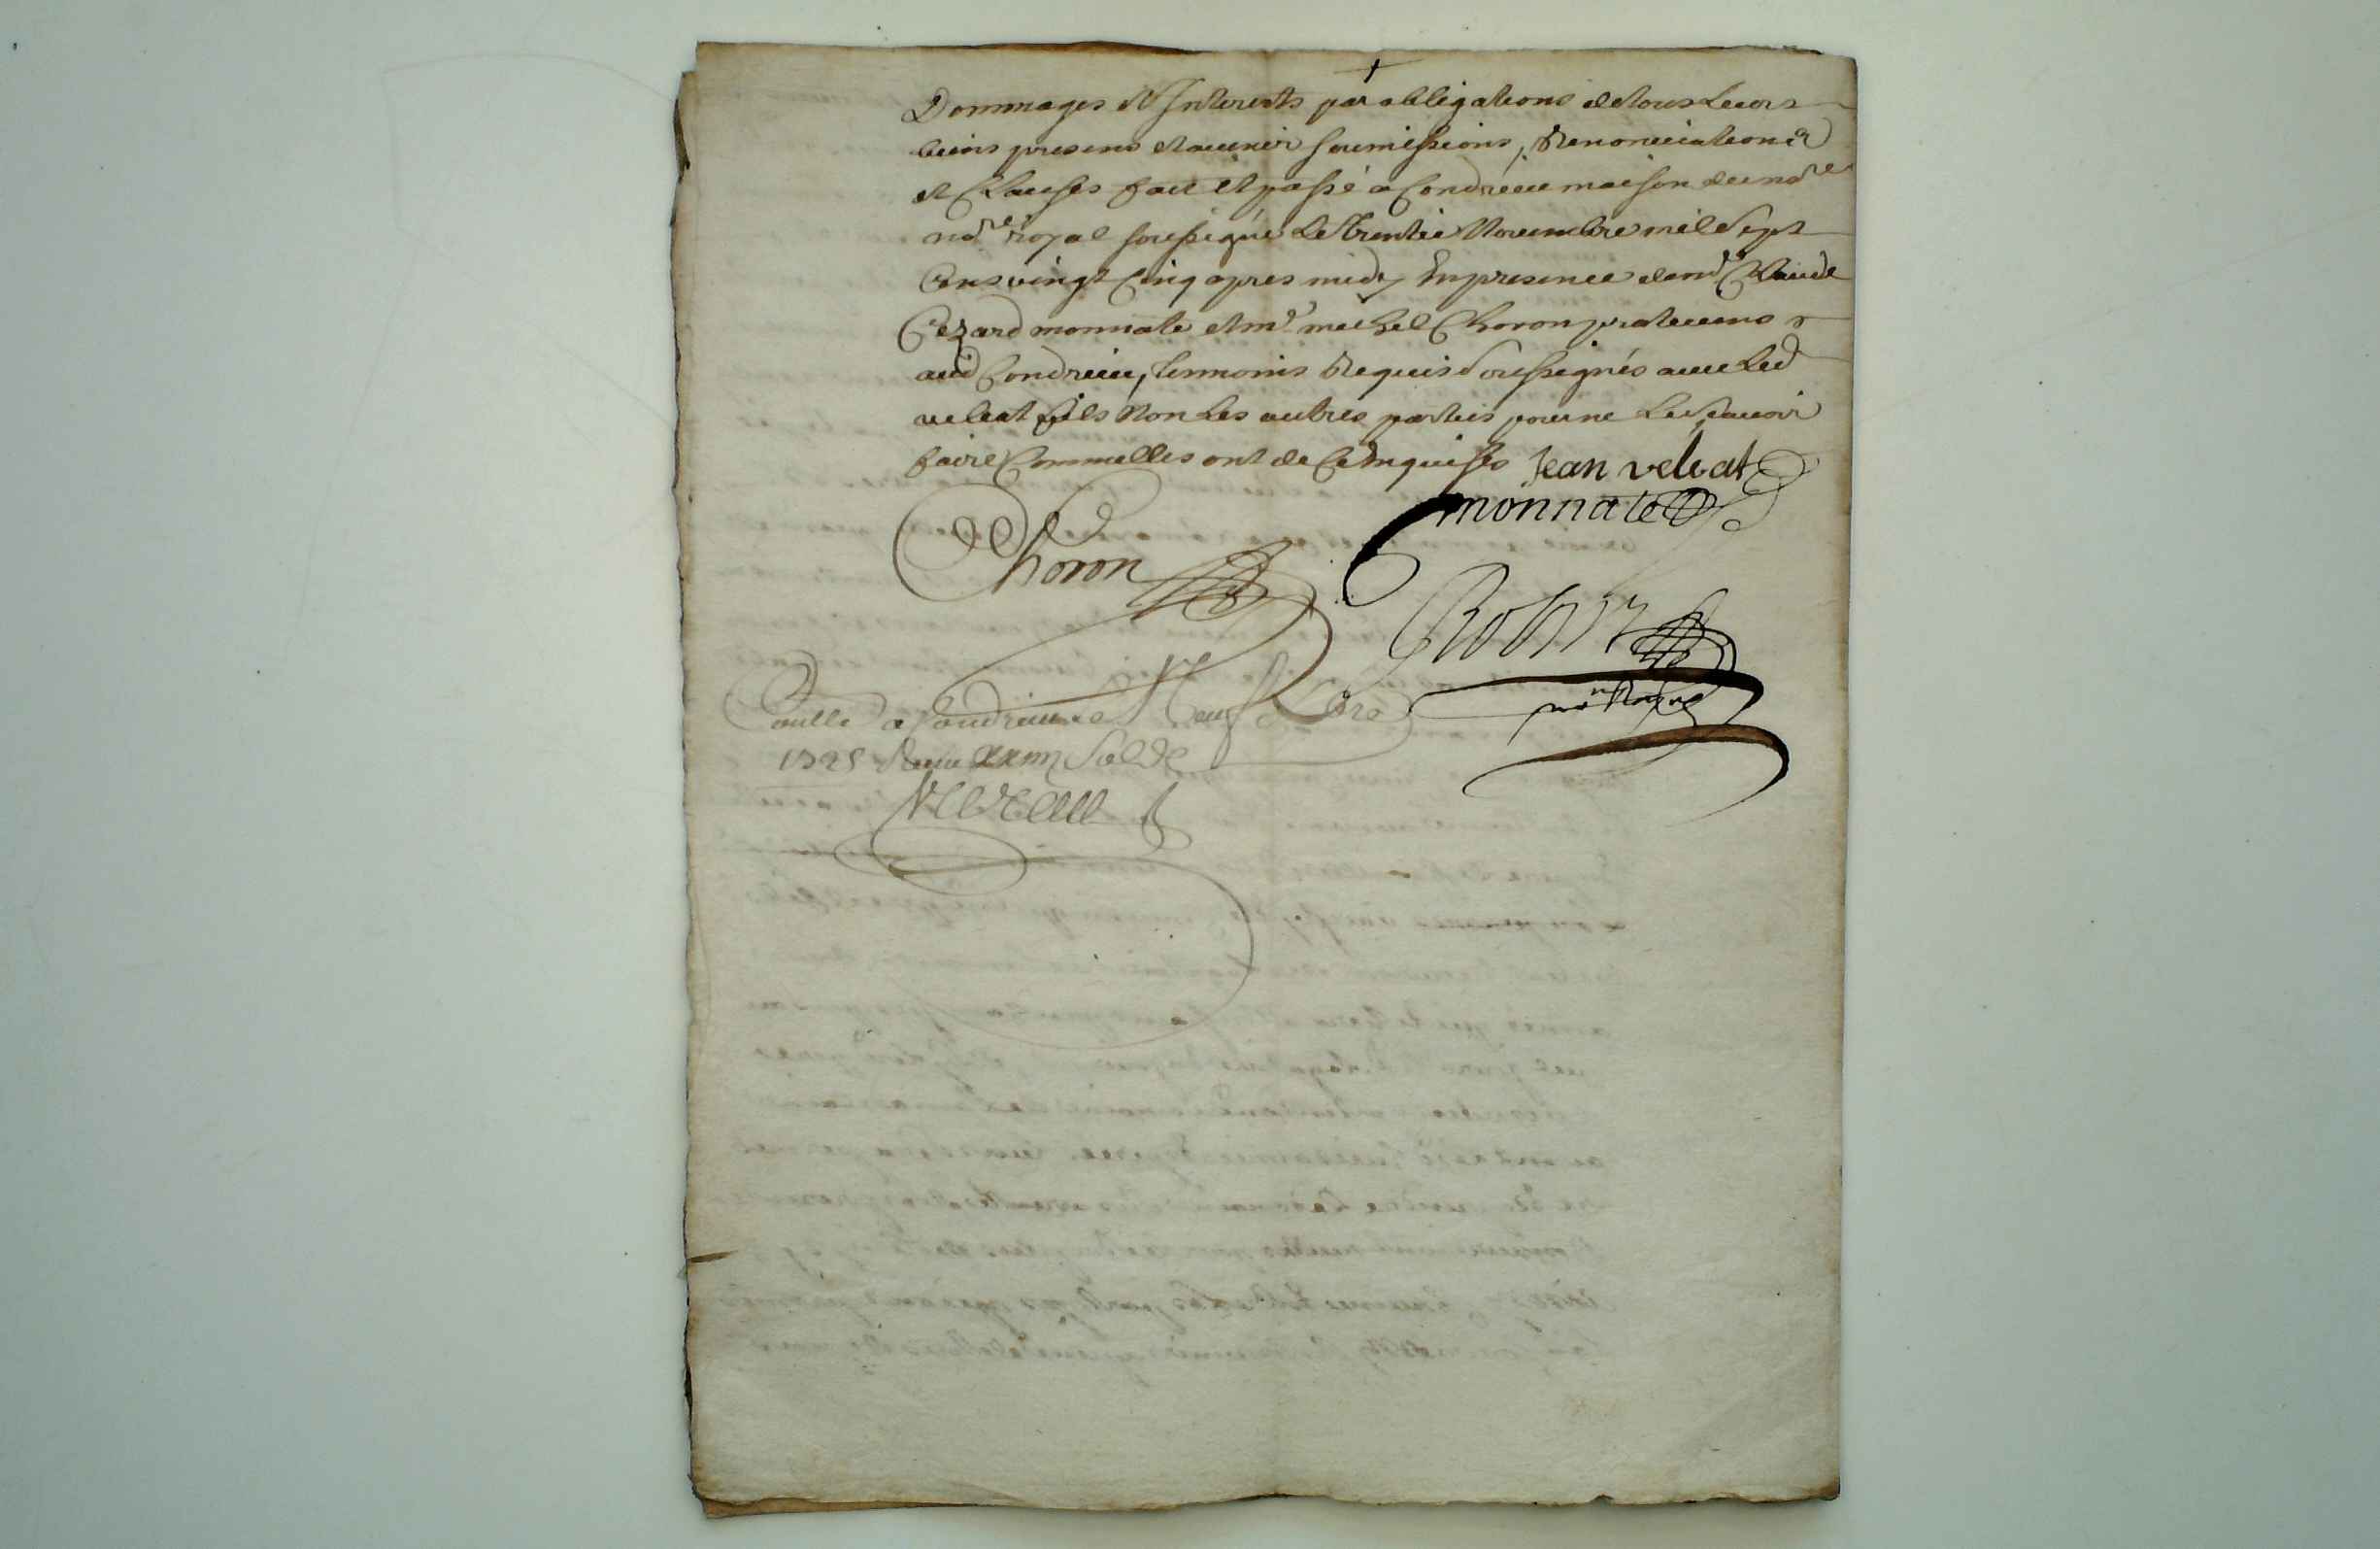 Dommages et Interests par obligations de tous Leurs
biens presens et auenir soumissions, Renonciations
et Clauses fait et passé a Condrieu maison du no.re
no.re royal soussigné Le Trentie Nouembre mil Sept
Cens vingt Cinq apres midy En presence de m.r Claude
Cezard monnate et m.r michel Choron praticiens
aud Condrieu, temoins Requis Soussignés auec Led
veleat fils Non Les autres parties pour ne Le Scauoir
faire Comm'elles ont dit de Ce Enquises Jean veleat
monnate
Choron
Robin
no.re Royal
Con.llé a Condrieu Le Neuf Xbre
1725 Receu Sols